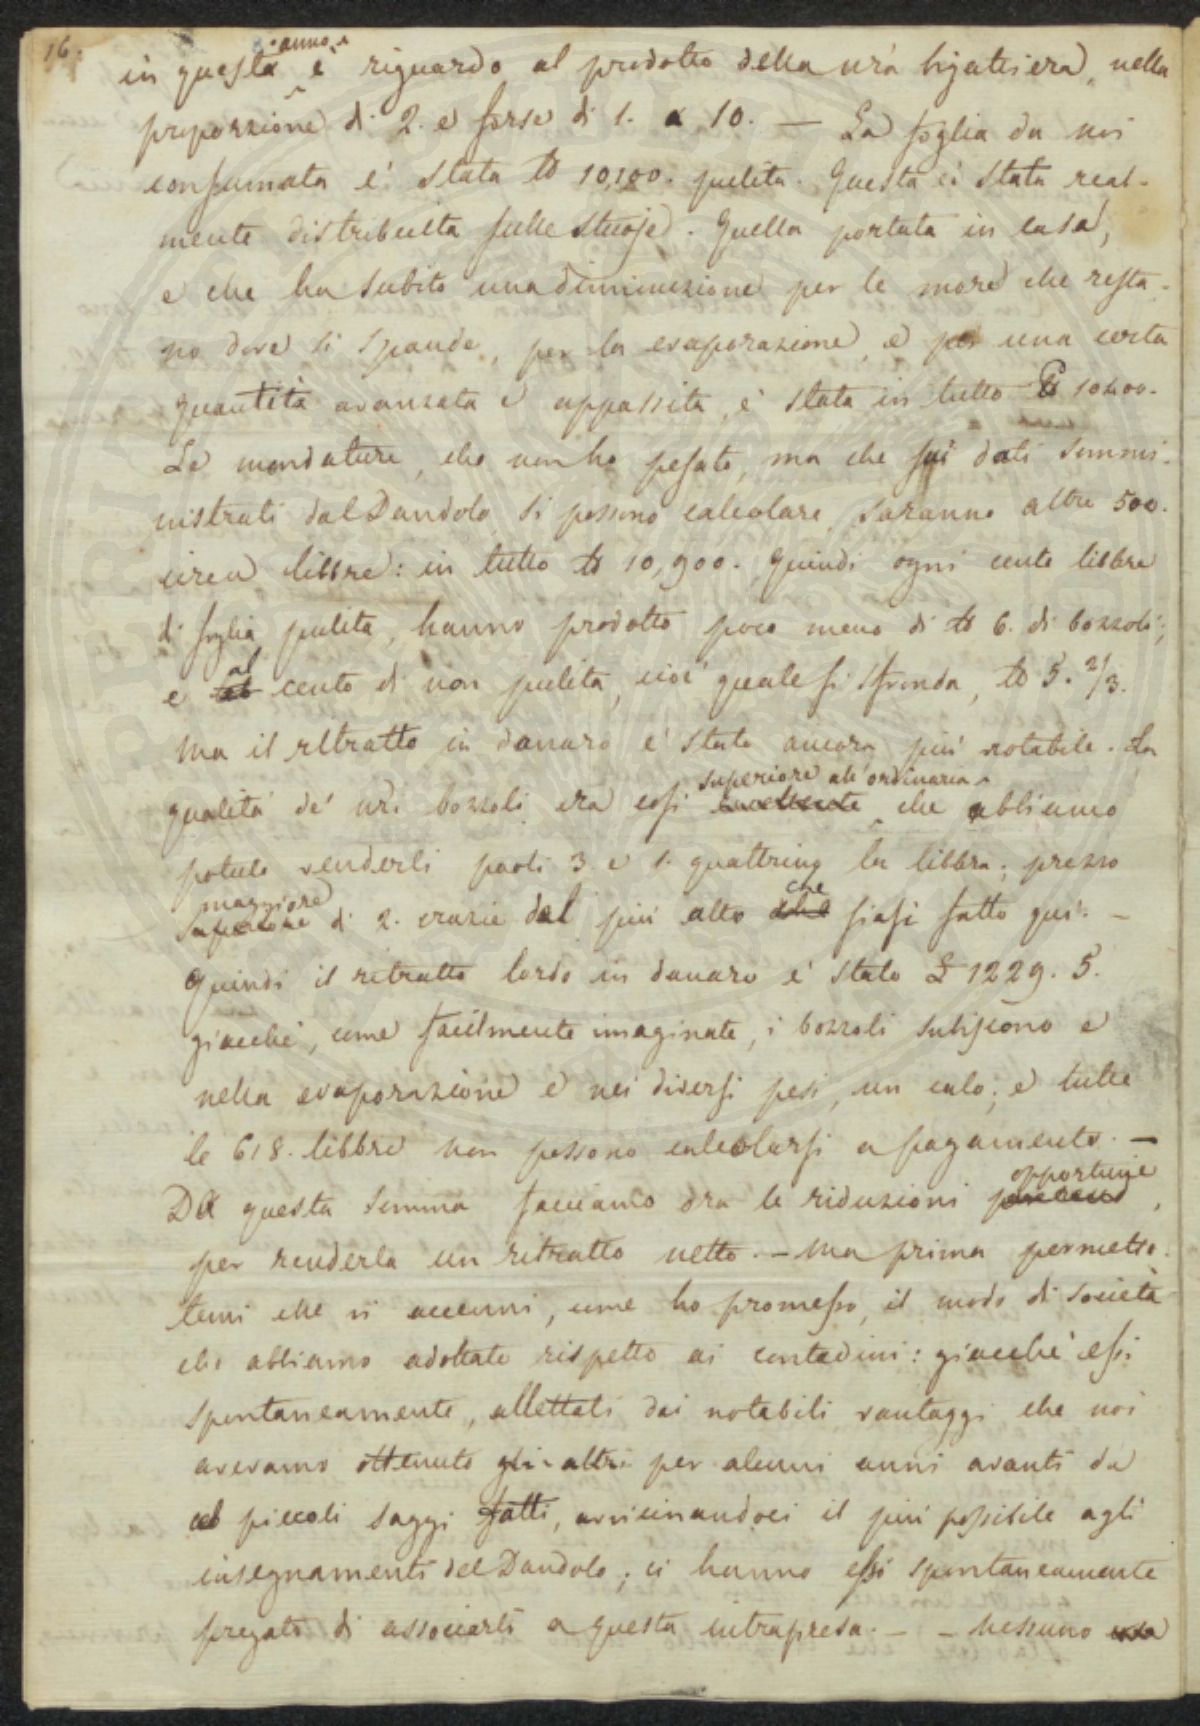 16.
in questa ^anno^ è riguardo al prodotto della nra bigattiera, nella
proporzione di 2. e forse di 1. a 10. — La foglia da noi
consumata è stata ℔ 10,100. pulita. Questa è stata real-
mente distribuita sulle stuoje. Quella portata in casa,
e che ha subito una diminuzione per le more che resta-
no dove si spande, per la evaporazione, e per una certa
quantità avanzata e appassita, è stata in tutto ℔ 10400.
Le mondature, che non ho pesato, ma che sui dati sommi-
nistrati dal Dandolo si possono calcolare, saranno altre 500.
circa libbre: in tutto ℔ 10,900. Quindi ogni cento libbre
di foglia pulita, hanno prodotto poco meno di ℔ 6. di bozzoli;
e al cento di non pulita, cioè quale si sfronda, ℔ 5. 2/3.
Ma il ritratto in danaro è stato ancora più notabile. La
qualità de' nri bozzoli era così superiore all'ordinaria che abbiamo
potuto venderli paoli 3. e 1. quattrino la libbra; prezzo
maggiore di 2. crazie del più alto che siasi fatto qui. —
Quindi il ritratto lordo in danaro è stato £ 1229. 5.
giacchè, come facilmente imaginate, i bozzoli subiscono e
nella evaporazione e nei diversi pesi, un calo; e tutte
le 618. libbre non possono calcolarsi a pagamento. —
Da questa somma facciamo ora le riduzioni opportune,
per renderla un ritratto netto. — Ma prima permette-
temi che vi accenni, come ho promesso, il modo di società
che abbiamo adottato rispetto ai contadini: giacchè essi
spontaneamente, allettati dai notabili vantaggi che noi
avevamo ottenuto gli altri per alcuni anni avanti da
piccoli saggi fatti, avvicinandoci il più possibile agli
insegnamenti del Dandolo; ci hanno essi spontaneamente
pregato di associarli a questa intrapresa. — — Nessuno